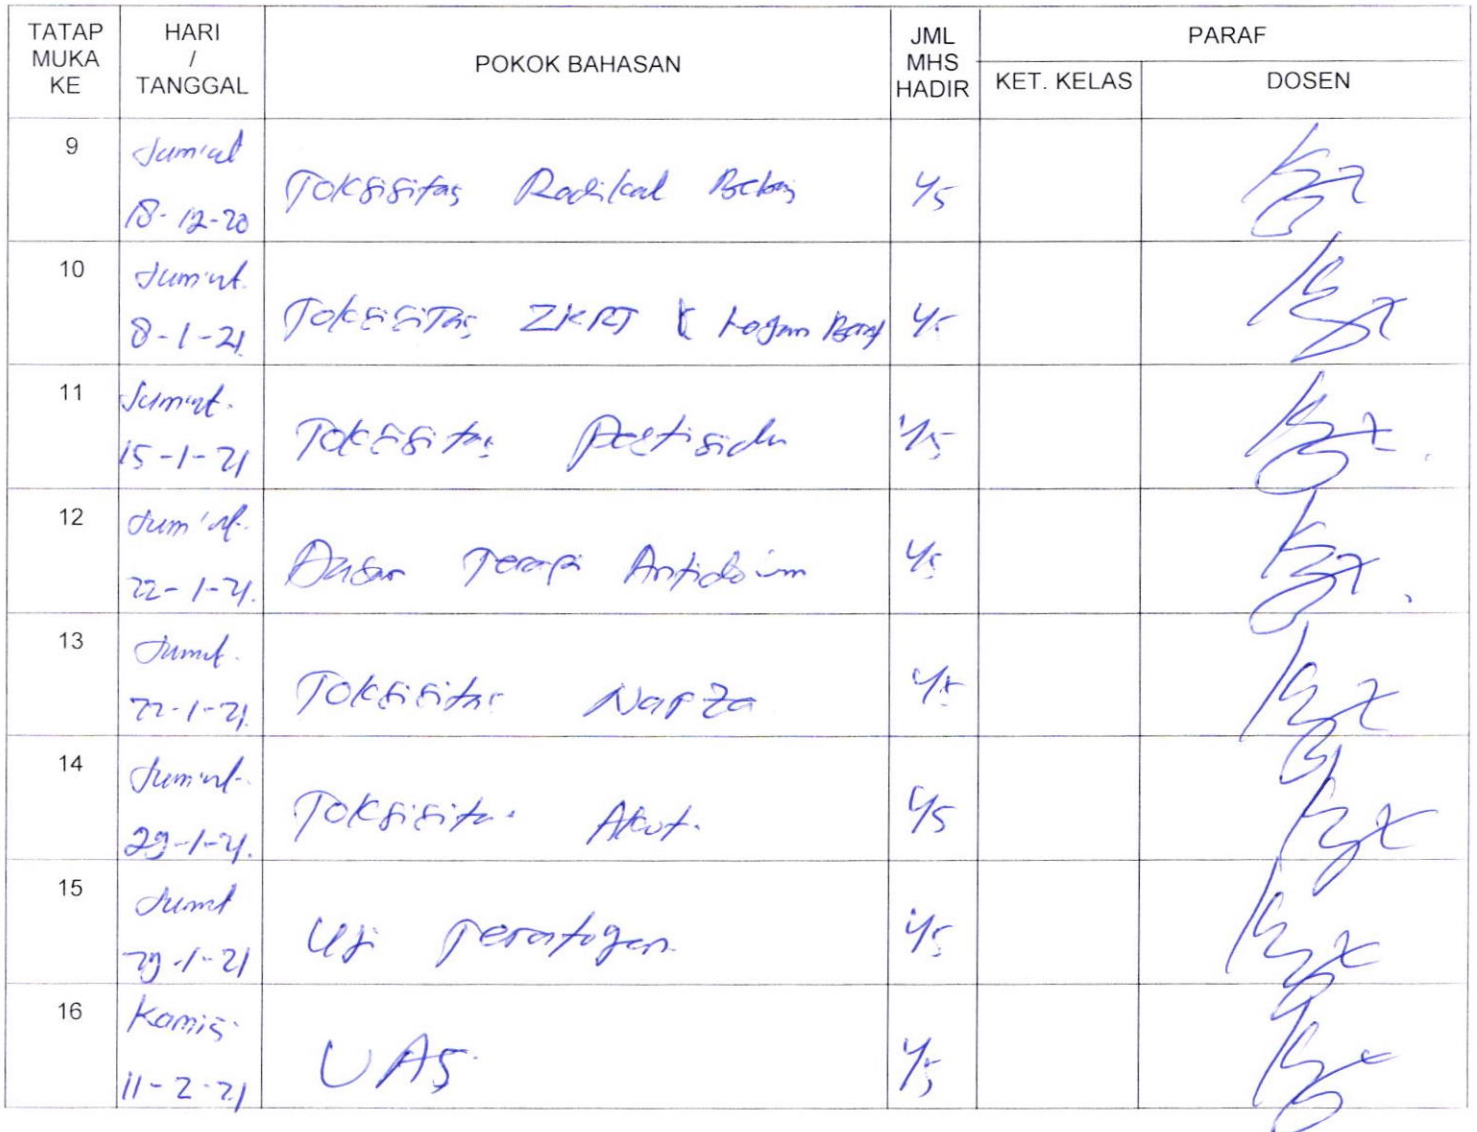 TATAP MUKA KE
HARI / TANGGAL
POKOK BAHASAN
JML MHS HADIR
PARAF
KET. KELAS
DOSEN
9
Jum'at
18-12-20
Toksisitas Radikal Bebas
45
10
Jum'at
8-1-21
Toksisitas ZKRT & Logam Berat
45
11
Jum'at
15-1-21
Toksisitas Pestisida
45
12
Jum'at
22-1-21
Dasar Terapi Antidotum
45
13
Jumat
22-1-21
Toksisitas Napza
45
14
Jum'at
29-1-21
Toksisitas Akut
45
15
Jumat
29-1-21
Uji Teratogen
45
16
Kamis
11-2-21
UAS
45